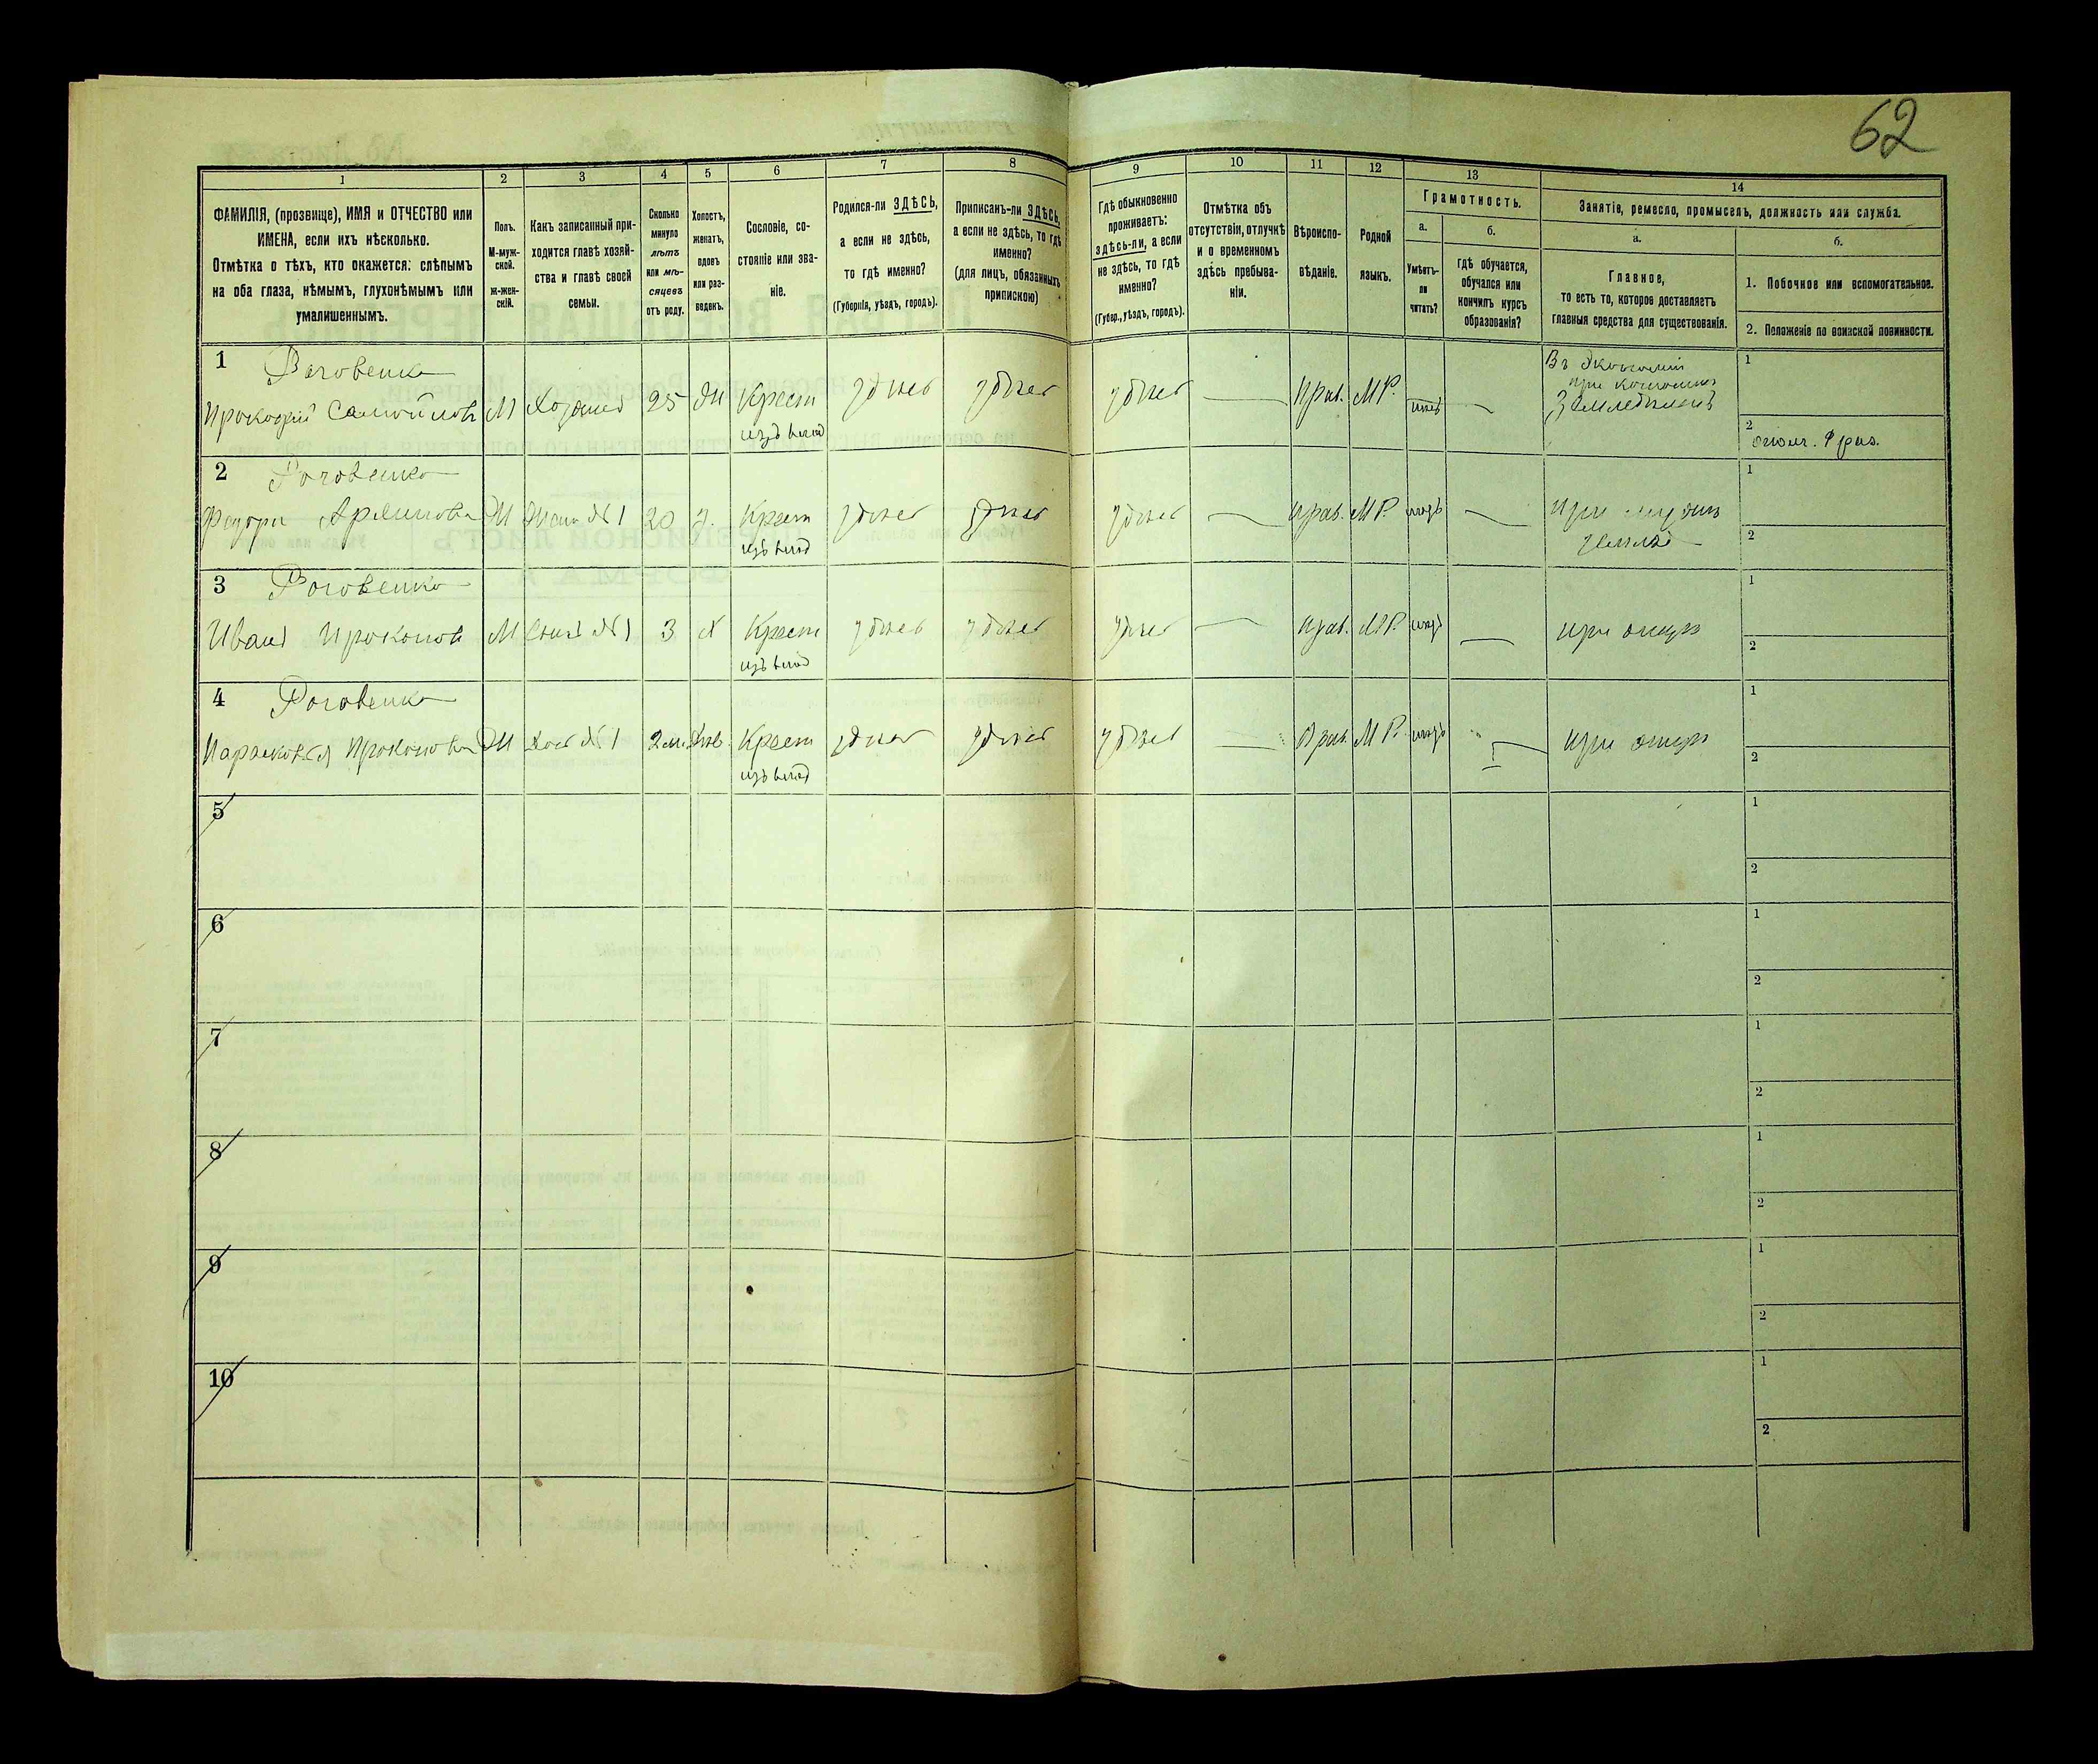 62
1
2
3
4
5
6
7
8
9
10
11
12
13
14
ФАМИЛІЯ, (прозвище), ИМЯ и ОТЧЕСТВО или
ИМЕНА, если ихъ нѣсколько.
Отмѣтка о тѣхъ, кто окажется: слѣпымъ
на оба глаза, нѣмымъ, глухонѣмымъ или
умалишеннымъ.
Полъ.
М-муж-
ской.
ж-жен-
скій.
Какъ записанный при-
ходится главѣ хозяй-
ства и главѣ своей
семьи.
Сколько
минуло
лѣтъ
или мѣ-
сяцевъ
отъ роду.
Холостъ,
женатъ,
вдовъ
или раз-
веденъ.
Сословіе, со-
стояніе или зва-
ніе.
Родился-ли ЗДѢСЬ,
а если не здѣсь,
то гдѣ именно?
(Губернія, уѣздъ, городъ).
Приписанъ-ли ЗДѢСЬ,
а если не здѣсь, то гдѣ
именно?
(для лицъ, обязанныхъ
припискою)
Гдѣ обыкновенно
проживаетъ:
здѣсь-ли, а если
не здѣсь, то гдѣ
именно?
(Губер., уѣздъ, городъ).
Отмѣтка объ
отсутствіи, отлучкѣ
и о временномъ
здѣсь пребыва-
ніи.
Вѣроиспо-
вѣданіе.
Родной
языкъ.
Грамотность.
а.
б.
Умѣетъ-
ли
читать?
гдѣ обучается,
обучался или
кончилъ курсъ
образованія?
Занятіе, ремесло, промыселъ, должность или служба.
а.
б.
Главное,
то есть то, которое доставляетъ
главныя средства для существованія.
1. Побочное или вспомогательное.
2. Положеніе по воинской повинности.
1 Роговенко
Прокофій Самойловъ М Хозяинъ 25 Ж Крест здѣсь здѣсь здѣсь — Прав. МР. —
изъ влад
Въ Экономіи
Земледѣлецъ
1
2
2 Роговенко
Федора Ж Жена №1 20 З. Крест здѣсь здѣсь здѣсь — прав. МР. —
изъ влад
при мужѣ
1
2
3 Роговенко
Иванъ Прокоповъ М Сынъ №1 3 Х Крест здѣсь здѣсь здѣсь — прав. МР. — при отцѣ
изъ влад
1
2
4 Роговенко
Парасковія Прокопова Ж Дочь №1 2 м. Дѣв. Крест здѣсь здѣсь здѣсь — Прав. МР. — при отцѣ
изъ влад
1
2
5
1
2
6
1
2
7
1
2
8
1
2
9
1
2
10
1
2